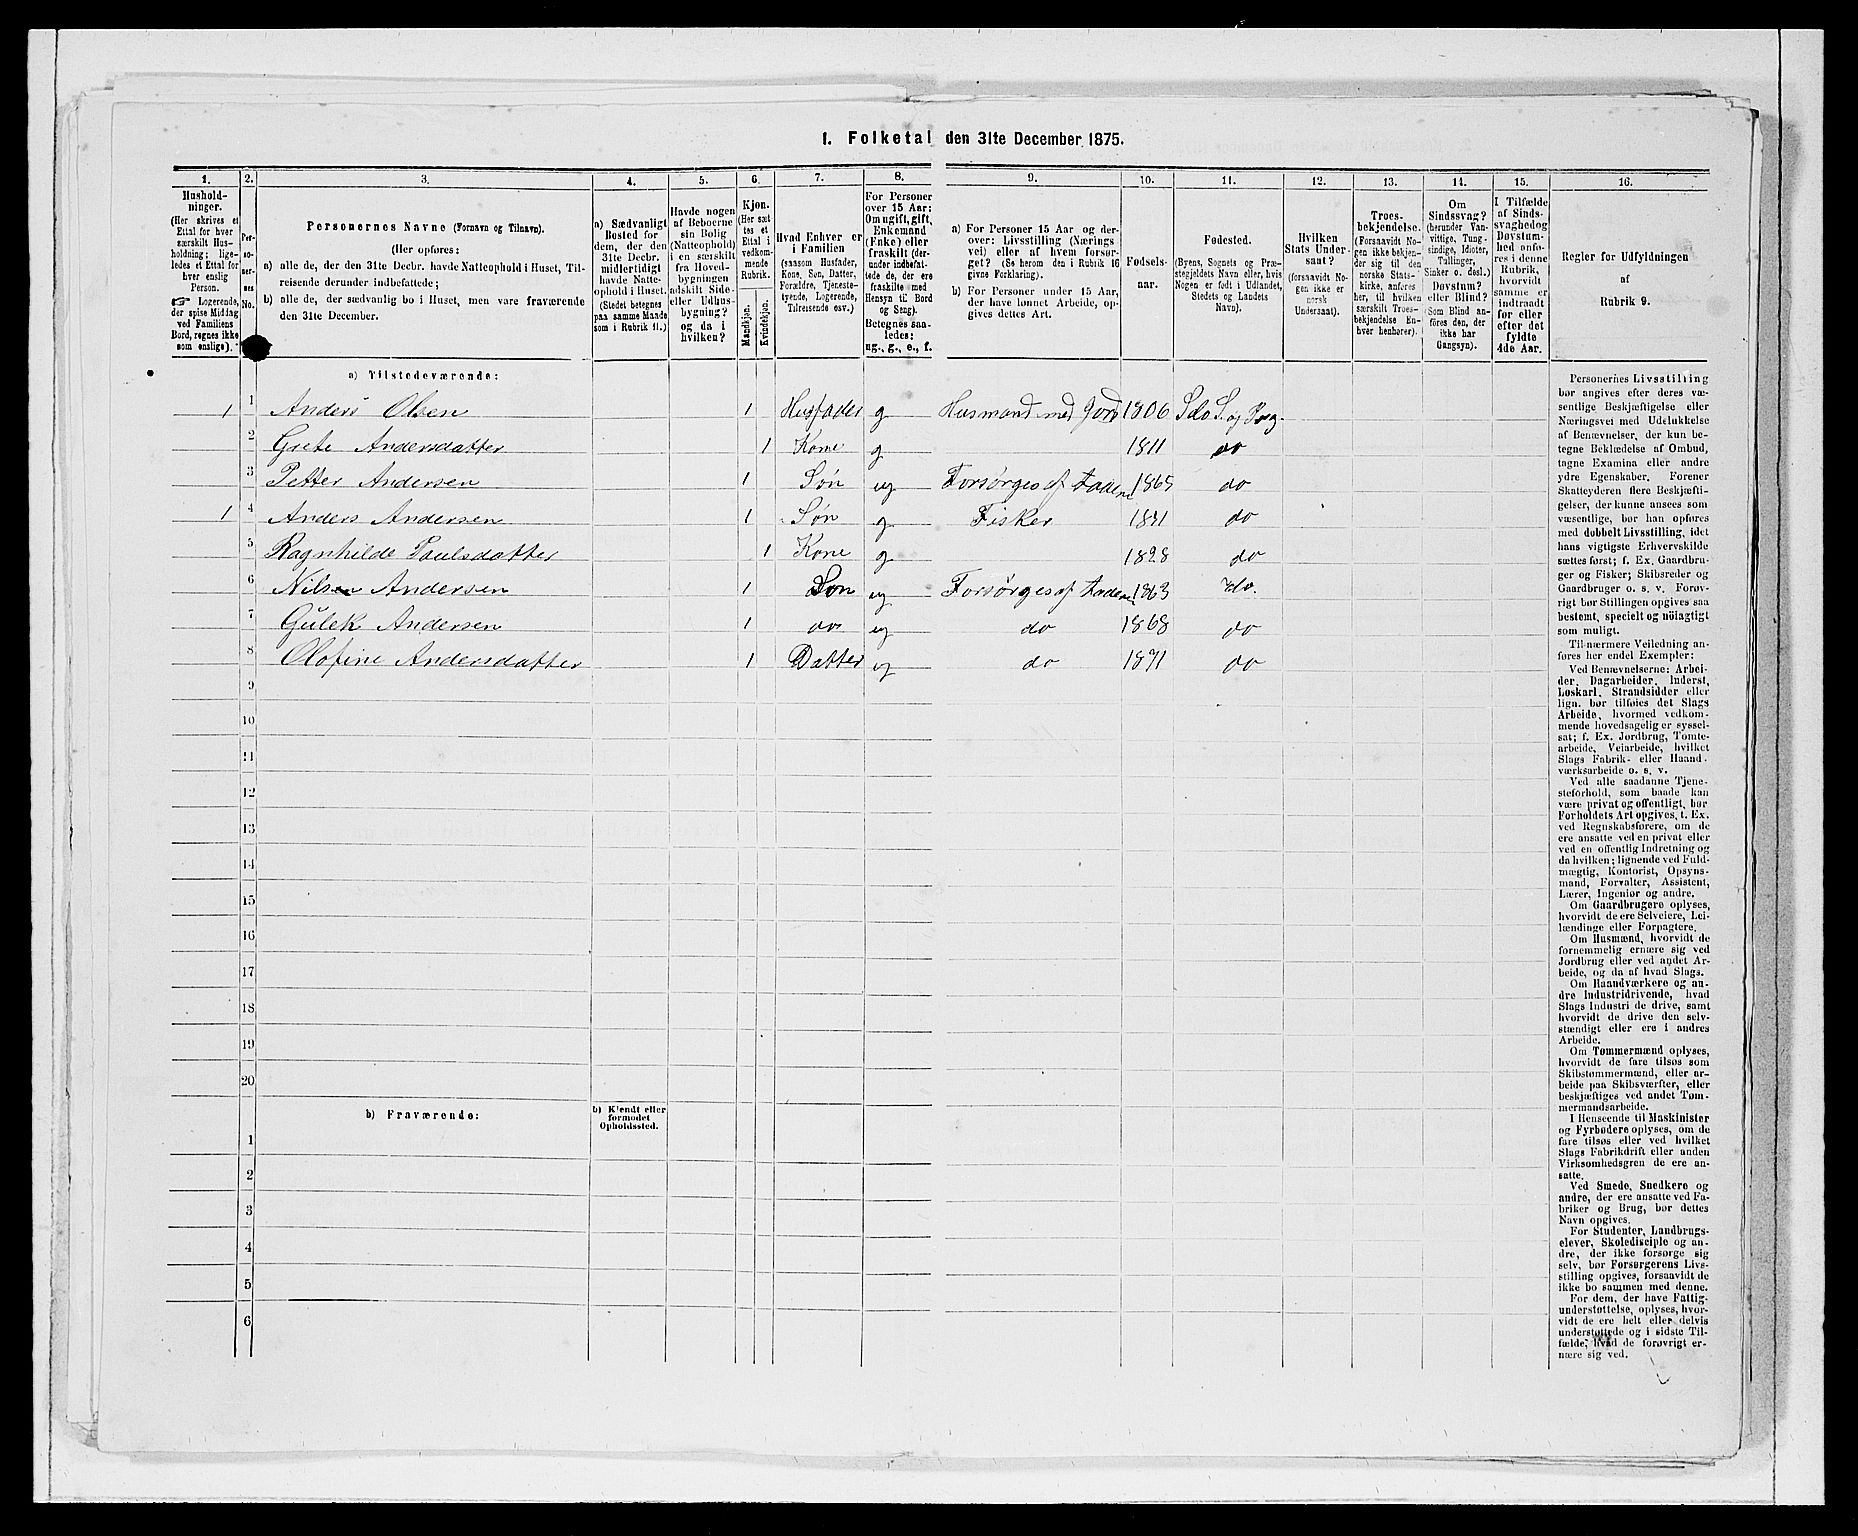 1. Folketal den 31te December 1875.
1. 2. 3. 4. 5. 6. 7. 8. 9. 10. 11. 12. 13. 14. 15. 16.
Hushold-
ninger.
(Her skrives et
Ettal for hver
særskilt Hus-
holdning; lige-
ledes et Ettal for
hver enslig
Person.
☞ Logerende,
der spise Middag
ved Familiens
Bord, regnes ikke
som enslige).
Per-
soner-
nes
No.
Personernes Navne (Fornavn og Tilnavn).
(Her opføres:
a) alle de, der den 31te Decbr. havde Natteophold i Huset, Til-
reisende derunder indbefattede;
b) alle de, der sædvanlig bo i Huset, men vare fraværende
den 31te December.
a) Sædvanligt
Bosted for
dem, der den
31te Decbr.
midlertidigt
havde Natte-
ophold i Huset.
(Stedet betegnes
paa samme Maade
som i Rubrik 11.)
Havde nogen
af Beboerne
sin Bolig
(Natteophold)
i en særskilt
fra Hoved-
bygningen
adskilt Side-
eller Udhus-
bygning?
og da i
hvilken?
Kjøn.
(Her sæt
tes et
Ettal i
vedkom-
mende
Rubrik.
Mandkjøn.
Kvindekjøn.
Hvad Enhver er
i Familien
(saasom Husfader,
Kone, Søn, Datter,
Forældre, Tjeneste-
tyende, Logerende,
Tilreisende osv.)
For Personer
over 15 Aar:
Om ugift, gift,
Enkemand
(Enke) eller
fraskilt (der-
under indbefat-
tede de, der ere
fraskilte med
Hensyn til Bord
og Seng).
Betegnes saa-
ledes:
ug., g., e., f.
a) For Personer 15 Aar og der-
over: Livsstilling (Nærings
vei) eller af hvem forsør-
get? (Se herom den i Rubrik 16
givne Forklaring).
b) For Personer under 15 Aar,
der have lønnet Arbeide, op-
gives dettes Art.
Fødsels-
aar.
Fødested.
(Byens, Sognets og Præ-
stegjeldets Navn eller, hvis
Nogen er født i Udlandet,
Stedets og Landets
Navn).
Hvilken
Stats Under-
saat?
(forsaavidt No-
gen ikke er
norsk
Undersaat).
Troes-
bekjendelse.
(Forsaavidt No-
gen ikke bekjen-
der sig til den
norske Stats-
kirke, anføres
her, til hvilken
særskilt Troes-
bekjendelse En-
hver henhører).
Om
Sindssvag?
(herunder Van-
vittige, Tung-
sindige, Idioter,
Tullinger,
Sinker o. desl.)
Døvstum?
eller Blind?
(Som Blind an-
føres den, der
ikke har
Gangsyn).
I Tilfælde
af Sinds-
svaghed og
Døvstum-
hed anfø-
res i denne
Rubrik,
hvorvidt
samme er
indtraadt
før eller
efter det
fyldte
4de Aar.
Regler for Udfyldningen
af
Rubrik 9.
a) Tilstedeværende:
1 1 Anders Olsen 1 Husfader g Husmand med Jord 1806
2 Grete Andersdatter 1 Kone g 1811 do
3 Petter Andersen 1 Søn ug Forsørges af Faderen do
1 4 Anders Andersen 1 Søn g Fisker do
5 Ragnhilde Paulsdatter 1 Kone g 1828 do
6 Nilsen Andersen 1 Søn ug Forsørges af Faderen 1863 do.
7 Gulek Andersen 1 do ug do 1868 do
8 Olofine Andersdatter 1 Datter ug do 1871 do
9
10
11
12
13
14
15
16
17
18
19
20
b) Fraværende:
b) Kjendt eller
formodet
Opholdssted.
1
2
3
4
5
6
Personernes Livsstilling
bør angives efter deres væ-
sentlige Beskjæftigelse eller
Næringsvei med Udelukkelse
af Benævnelser, der kun be-
tegne Beklædelse af Ombud,
tagne Examina eller andre
ydre Egenskaber. Forener
Skatteyderen flere Beskjæfti-
gelser, der kunne ansees som
væsentlige, bør han opføres
med dobbelt Livsstilling, idet
hans vigtigste Erhvervskilde
sættes først; f. Ex. Gaardbru-
ger og Fisker; Skibsreder og
Gaardbruger o. s. v. Forøv-
rigt bør Stillingen opgives saa
bestemt, specielt og nöiagtigt
som muligt.
Til nærmere Veiledning an-
føres her endel Exempler:
Ved Benævnelserne: Arbei-
der, Dagarbeider, Inderst,
Løskarl, Strandsidder eller
lign. bør tilføies det Slags
Arbeide, hvormed vedkom-
mende hovedsagelig er syssel-
sat; f. Ex. Jordbrug, Tomte-
arbeide, Veiarbeide, hvilket
Slags Fabrik- eller Haand-
værksarbeide o. s. v.
Ved alle saadanne Tjene-
steforhold, som baade kan
være privat og offentligt, bør
Forholdets Art opgives, t. Ex.
ved Regnskabsførere, om de
ere ansatte ved en privat eller
ved en offentlig Indretning og
da hvilken; lignende ved Fuld-
mægtig, Kontorist, Opsyns-
mand, Forvalter, Assistent,
Lærer, Ingeniør og andre.
Om Gaardbrugere oplyses,
hvorvidt de ere Selveiere, Lei-
lændinge eller Forpagtere.
Om Husmænd, hvorvidt de
fornemmelig ernære sig ved
Jordbrug eller ved andet Ar-
beide, og da af hvad Slags.
Om Haandværkere og an-
dre Industridrivende, hvad
Slags Industri de drive, samt
hvorvidt de drive den selv-
stændigt eller ere i andres
Arbeide.
Om Tømmermænd oplyses,
hvorvidt de fare tilsøs som
Skibstømmermænd, eller ar-
beide paa Skibsværfter, eller
beskjæftiges ved andet Tøm-
mermandsarbeide.
I Henseende til Maskinister
og Fyrbødere oplyses, om de
fare tilsøs eller ved hvilket
Slags Fabrikdrift eller anden
Virksomhedsgren de ere an-
satte.
Ved Smede, Snedkere og
andre, der ere ansatte ved Fa-
briker og Brug, bør dettes
Navn opgives.
For Studenter, Landbrugs-
elever, Skoledisciple og an-
dre, der ikke forsørge sig
selv, bør Forsørgerens Livs-
stilling opgives, forsaavidt de
ikke bo sammen med denne.
For dem, der have Fattig-
understøttelse, oplyses, hvor-
vidt de ere helt eller delvis
understøttede og i sidste Til-
fælde, hvad de forøvrigt er-
nære sig ved.